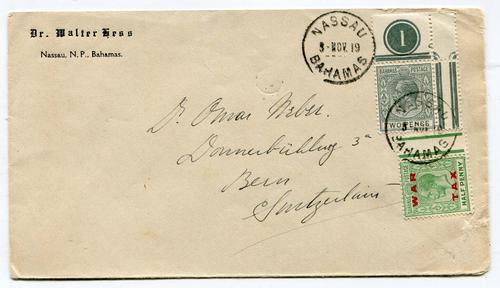 Dr. Walter Hess
Nassau, N. P., Bahamas.
NASSAU
3-NOV.19
BAHAMAS
1
BAHAMAS POSTAGE
TWO PENCE
NASSAU
BAHAMAS
WAR TAX
HALF PENNY
Dr. Omar Weber.
Donnerbühlweg 3a
Bern
Switzerland